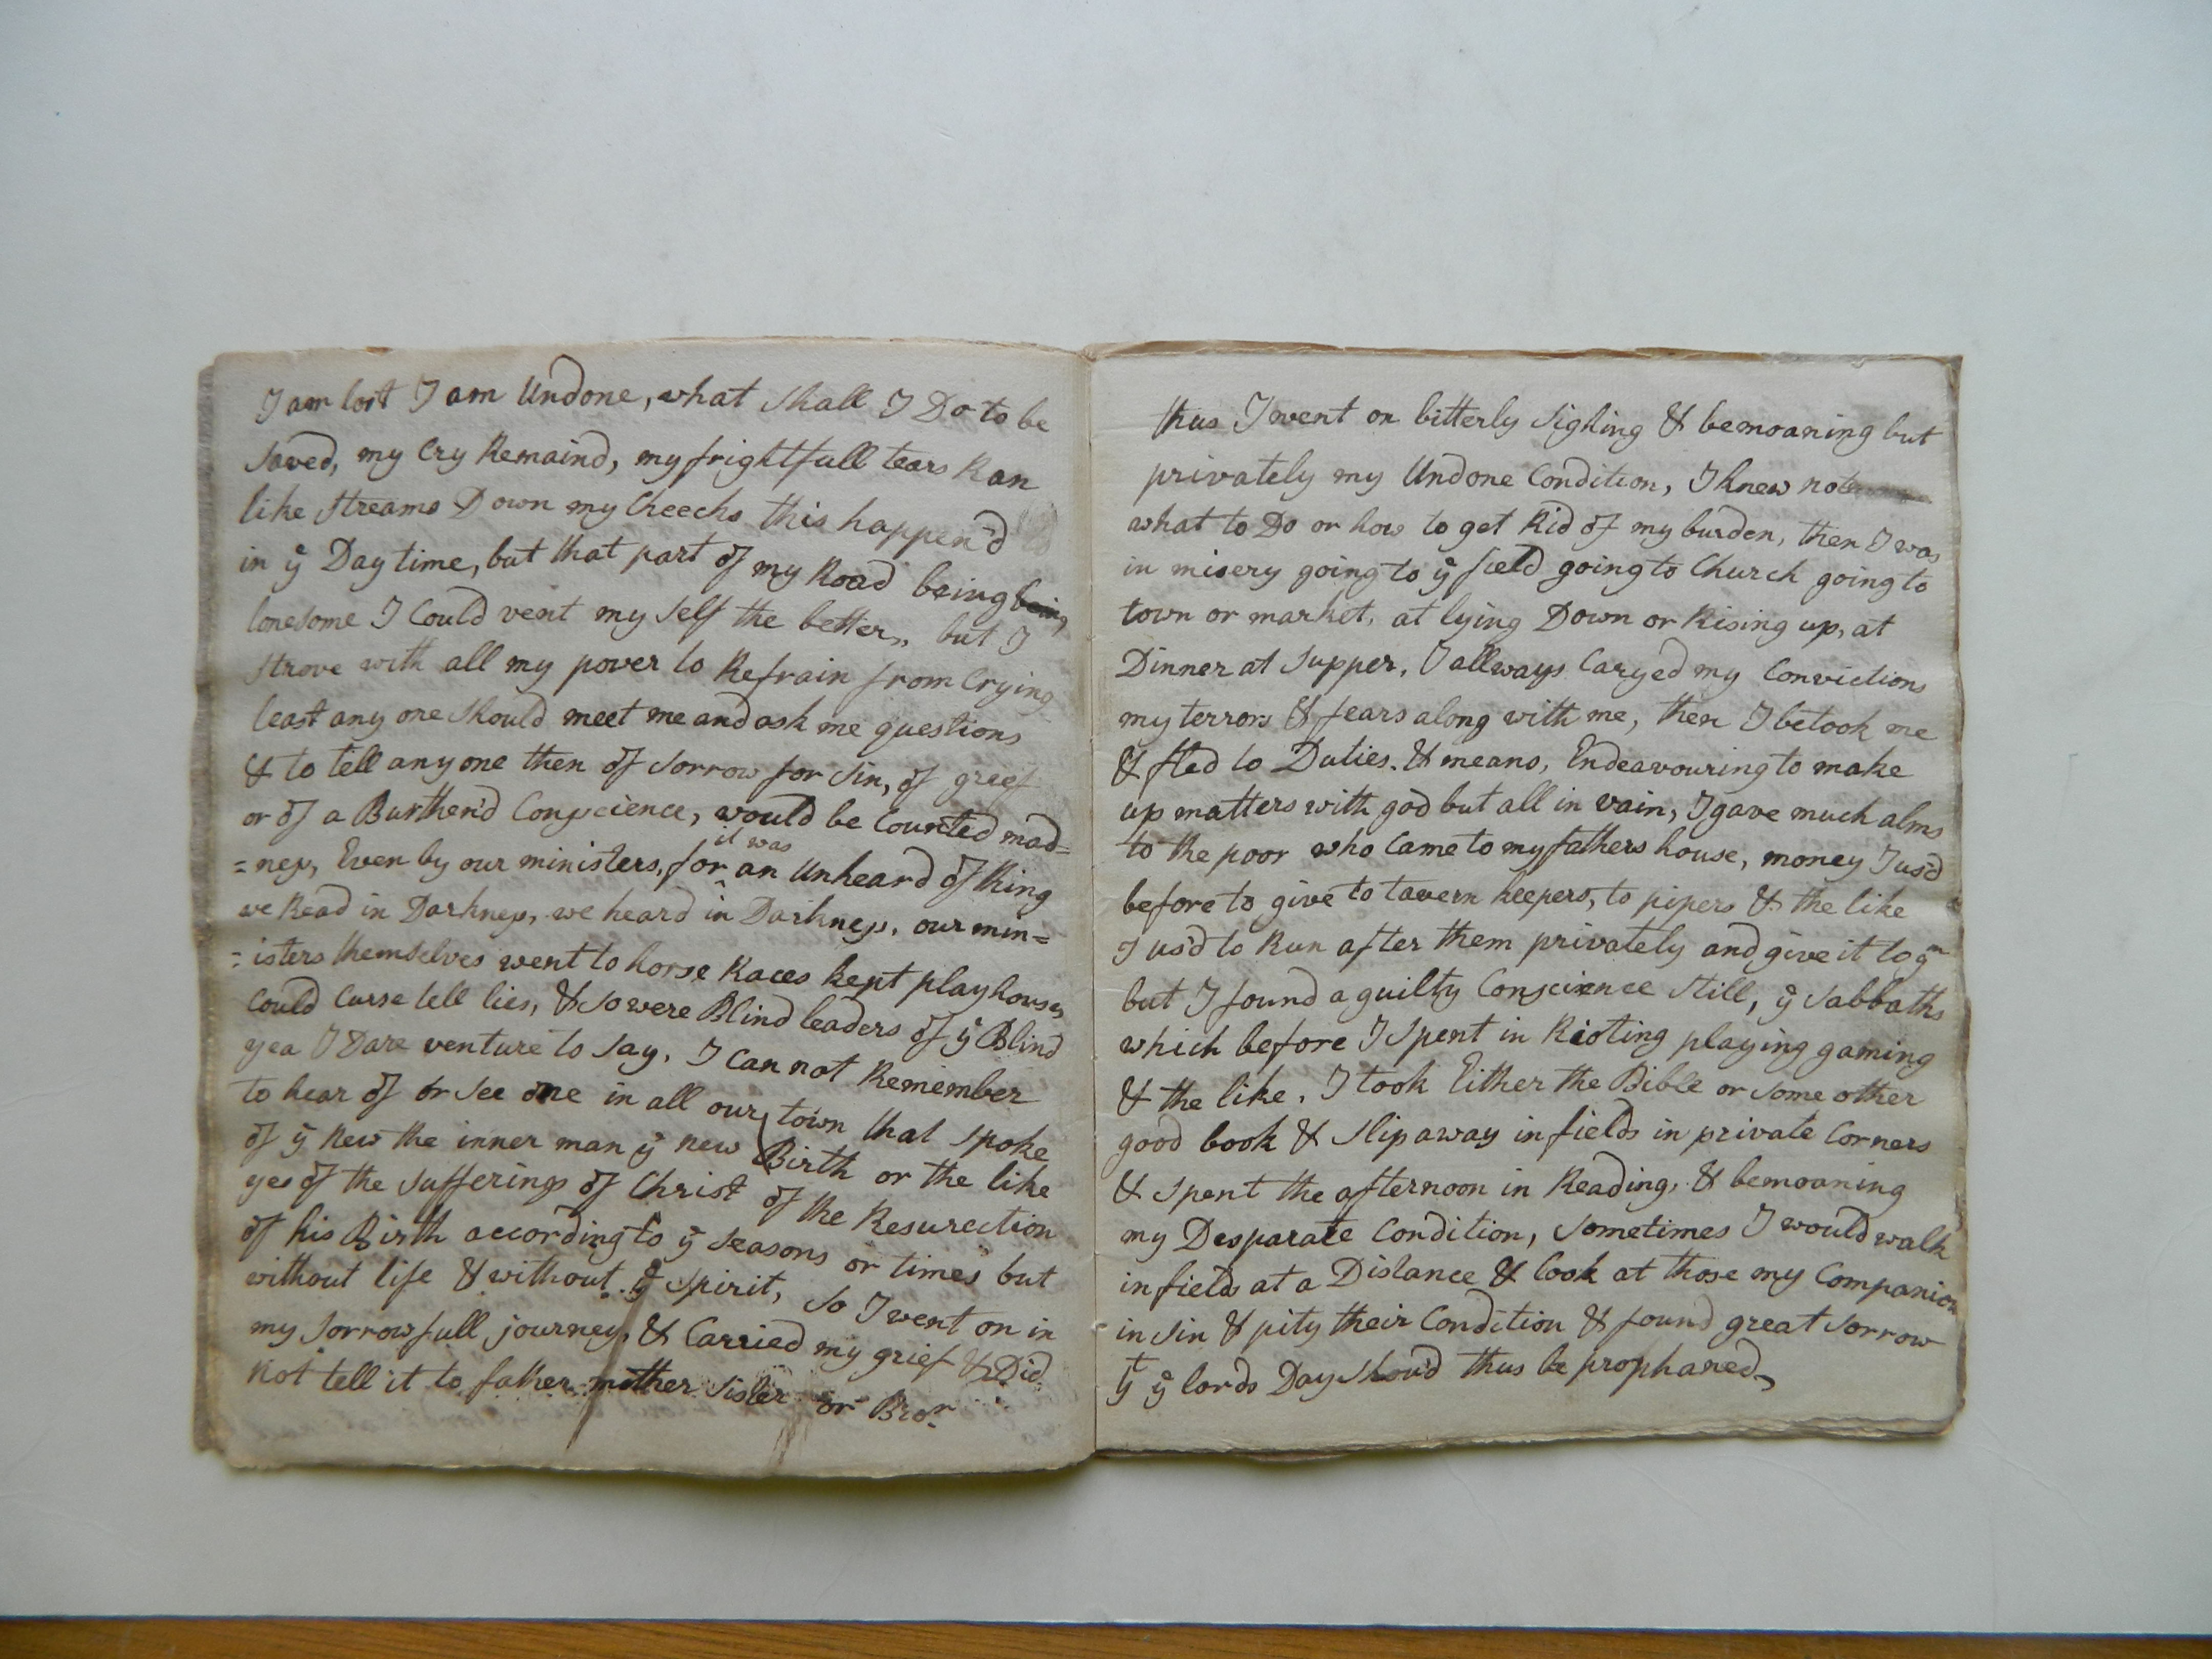 I am lost I am Undone, what shall I Do to be
saved, my Cry Remaind, my frightfull tears Ran
like streams Down my Cheecks this happen'd
in ye Day time, but that part of my Road being being
lonesome I Could vent my self the better, but I
strove with all my power to Refrain from Crying
least any one should meet me and ask me questions
& to tell any one then of sorrow for sin, of grief
or of a Burthen'd Conscience, would be Counted mad=
=ness, Even by our ministers, for it was an Unheard of thing
we Read in Darkness, we heard in Darkness, our min=
=isters themselves went to horse Races kept playhouses
Could Curse tell lies, & so were Blind leaders of ye Blind
yea I Dare venture to say, I Can not Remember
to hear of or see one in all our town that spoke
of ye New the inner man ye new Birth or the like
yes of the sufferings of Christ of the Resurection
of his Birth according to ye seasons or times but
without life & without ye spirit, so I went on in
my sorrowfull journey, & Carried my grief & Did
not tell it to father mother sister or Bror
thus I went on bitterly sighing & bemoaning but
privately my Undone Condition, I knew not
what to Do or how to get Rid of my burden, then I was
in misery going to ye field going to Church going to
town or market, at lying Down or Rising up, at
Dinner at supper, I allways Caryed my Convictions
my terrors & fears along with me, then I betook me
& fled to Duties & means, Endeavouring to make
up matters with god but all in vain, I gave much alms
to the poor who Came to my fathers house, money I us'd
before to give to tavern keepers, to pipers & the like
I us'd to Run after them privately and give it to ym
but I found a guilty Conscience still, ye sabbaths
which before I spent in Rioting playing gaming
& the like, I took Either the Bible or some other
good book & slip away in fields in private Corners
& spent the afternoon in Reading, & bemoaning
my Desparate Condition, sometimes I would walk
in fields at a Distance & look at those my Companions
in sin & pity their Condition & found great sorrow
yt ye lords Day shou'd thus be prophaned,